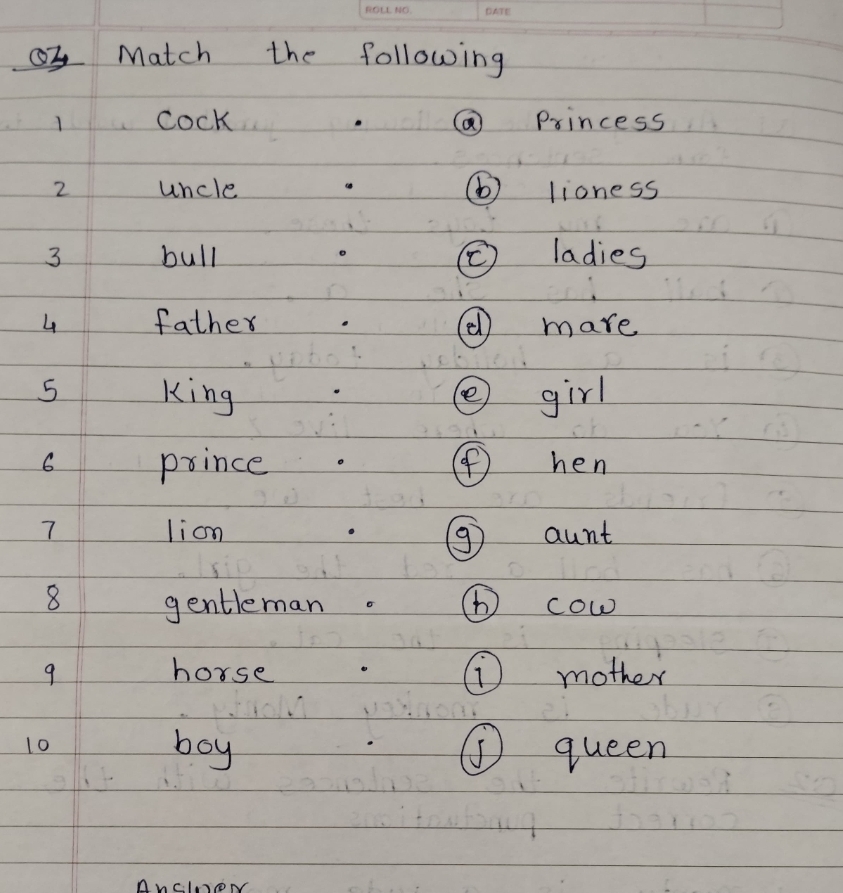 ROLL NO. DATE
Q4 Match the following
1 Cock • a Princess
2 uncle • b lioness
3 bull • c ladies
4 father • d mare
5 King • e girl
6 prince • f hen
7 lion • g aunt
8 gentleman • h cow
9 horse • i mother
10 boy • j queen
Answer